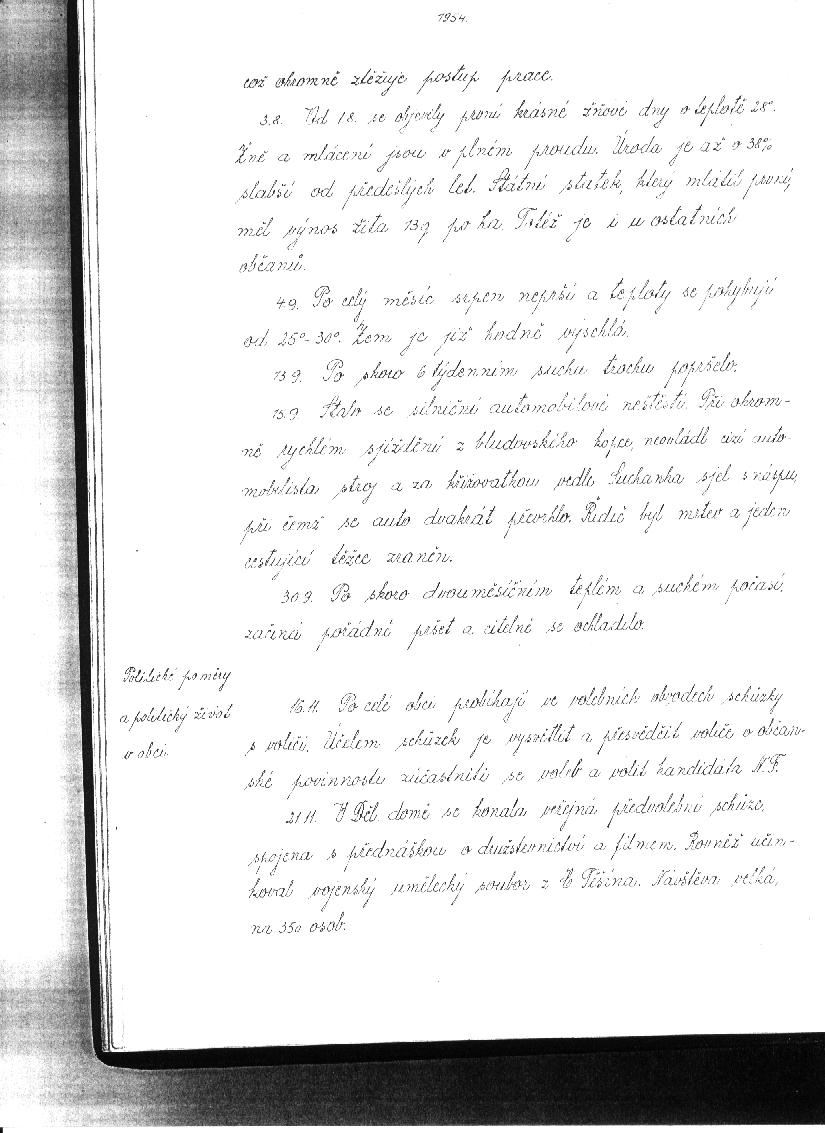 1954.
což ohromně ztěžuje postup prace.
3.8. Od 1.8. se objevily první krásné žňové dny o teplotě 28°.
Žně a mlácení jsou v plném proudu. Úroda je až o 38%
slabší od předešlých let. Státní statek, který mlátil první,
měl výnos žita 13q po ha. Totéž je i u ostatních
občanů.
4.9. Po celý měsíc srpen neprší a teploty se pohybují
od 25°-30°. Zem je již hodně vyschlá.
13.9. Po skoro 6 týdenním suchu trochu popršelo.
15.9. Stalo se silniční automobilové neštěstí. Při ohrom-
ně rychlém sjíždění z bludovského kopce, neovládl cizí auto-
mobilista stroj a za křižovatkou vedle Suchanka sjel s náspu,
při čemž se auto dvakrát převrhlo. Řidič byl mrtev a jeden
cestující těžce zraněn.
30.9. Po skoro dvouměsíčním teplém a suchém počasí,
začíná pořádně pršet a citelně se ochladilo.
Politické poměry
a politický život
v obci.
16.11. Po celé obci probíhají ve volebních obvodech schůzky
s voliči. Účelem schůzek je vysvětlit a přesvědčit voliče o občan-
ské povinnosti zúčastniti se voleb a volit kandidáta N.F.
21.11. V Děl. domě se konala veřejná předvolební schůze,
spojena s přednáškou o družstevnictví a filmem. Rovněž účin-
koval vojenský umělecký soubor z Č. Těšína. Návštěva velká,
na 350 osob.